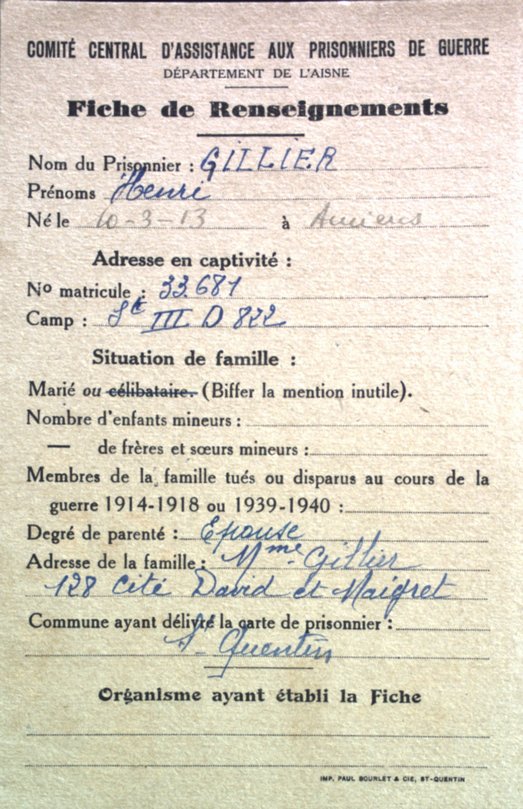 COMITÉ CENTRAL D'ASSISTANCE AUX PRISONNIERS DE GUERRE
DÉPARTEMENT DE L'AISNE
Fiche de Renseignements
Nom du Prisonnier : GILLIER
Prénoms Henri
Né le 10-3-13 à Amiens
Adresse en captivité :
No matricule : 33.681
Camp : St III D 822
Situation de famille :
Marié ou célibataire. (Biffer la mention inutile).
Nombre d'enfants mineurs :
— de frères et sœurs mineurs :
Membres de la famille tués ou disparus au cours de la
guerre 1914-1918 ou 1939-1940 :
Degré de parenté : Epouse
Adresse de la famille : Mme Gillier
128 Cité David et Maigret
Commune ayant délivré la carte de prisonnier :
St Quentin
Organisme ayant établi la Fiche
IMP. PAUL BOURLET & CIE, ST-QUENTIN